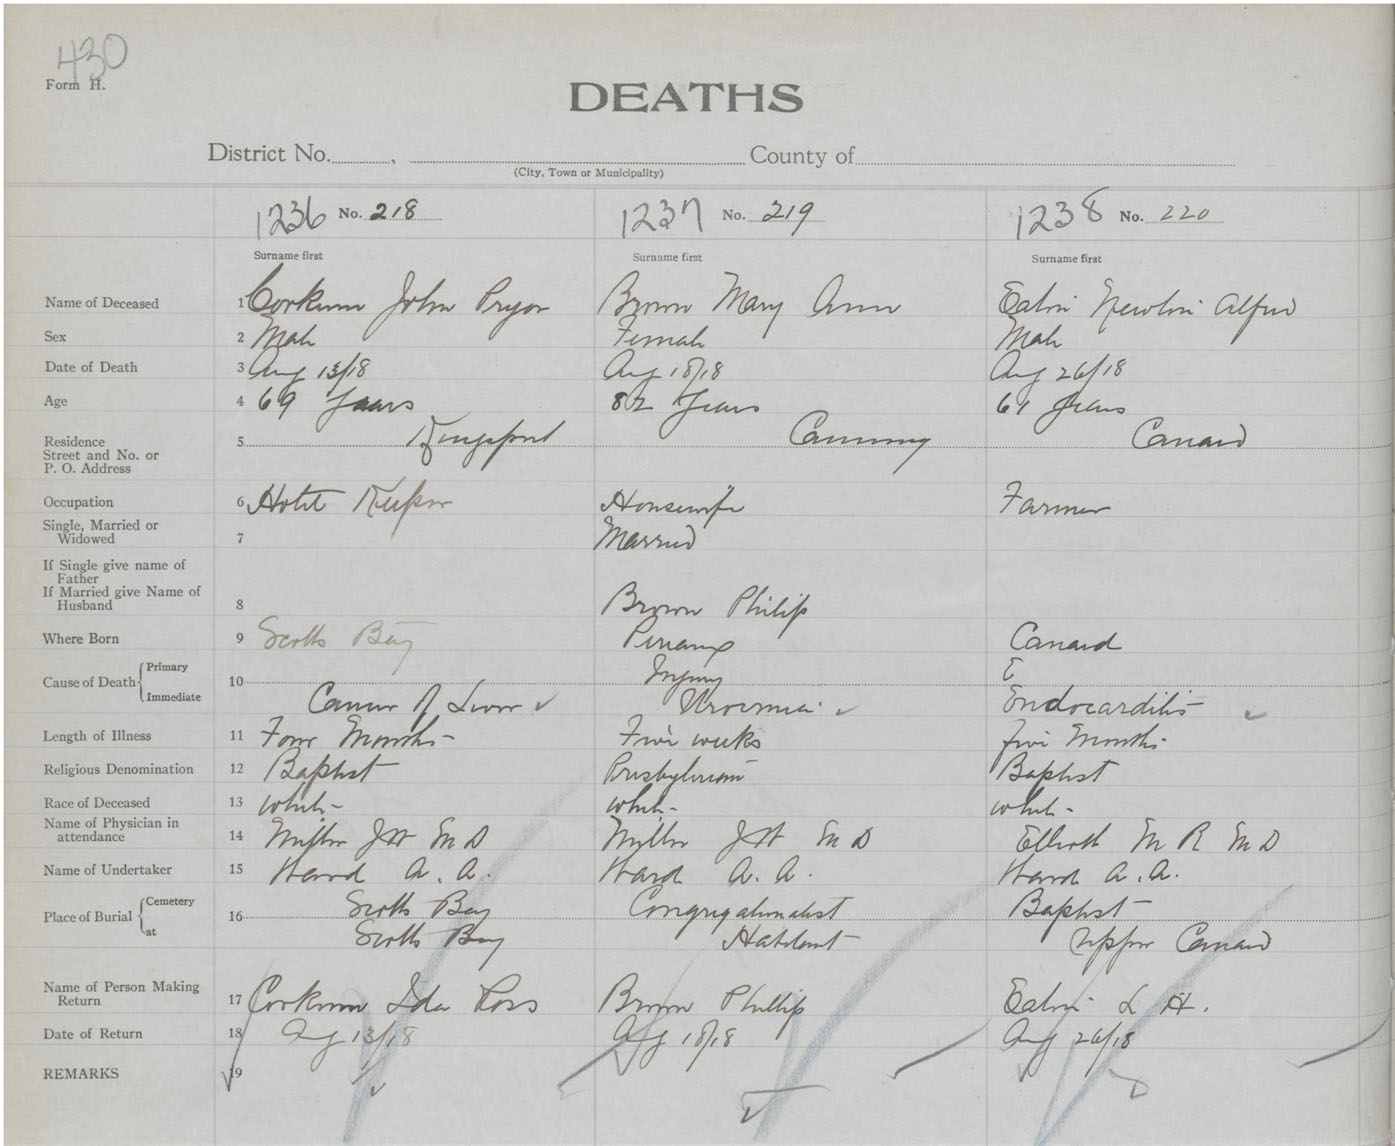 430
Form H.
DEATHS
District No. , County of
(City, Town or Municipality)
1236 No. 218 1237 No. 219 1238 No. 220
Surname first Surname first Surname first
Name of Deceased 1 Corkum John Pryor Brown Mary Ann Eaton Newton Alfred
Sex 2 Male Female Male
Date of Death 3 Aug 13/18 Aug 18/18 Aug 26/18
Age 4 69 Years 82 Years 61 Years
Residence 5 Kingsport Canning Canard
Street and No. or
P. O. Address
Occupation 6 Hotel Keeper Housewife Farmer
Single, Married or
Widowed 7 Married
If Single give name of
Father
If Married give Name of
Husband 8 Brown Philip
Where Born 9 Scotts Bay Canard
Cause of Death Primary 10 Injury E
Immediate Cancer of Liver Uroemia Endocarditis
Length of Illness 11 Four Months Five weeks five Months
Religious Denomination 12 Baptist Presbyterian Baptist
Race of Deceased 13 white white white
Name of Physician in
attendance 14 Miller J H M D Miller J H M D Elliott M R M D
Name of Undertaker 15 Ward A. A. Ward A. A. Ward A. A.
Place of Burial Cemetery 16 Scotts Bay Congregationalist Baptist
at Scotts Bay Habitant Upper Canard
Name of Person Making
Return 17 Corkum Ida Ross Brown Phillip Eaton L H.
Date of Return 18 Aug 13/18 Aug 18/18 Aug 26/18
REMARKS 19